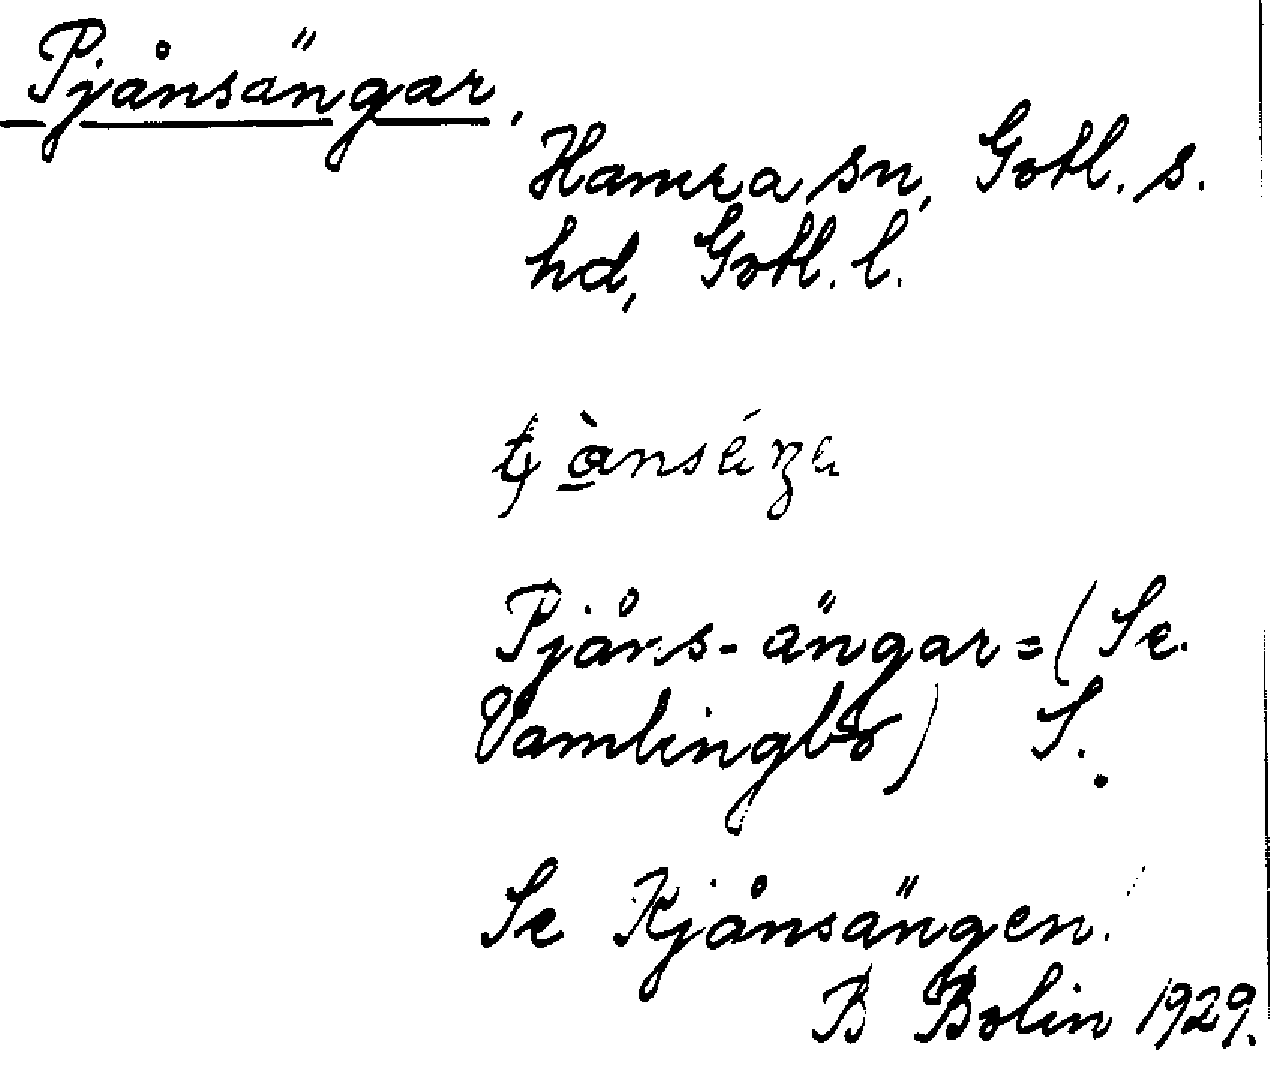 Pjånsängar,
Hamra sn, Gotl. s.
hd, Gotl. l.
Pjåns-ängar=(Se.
Vamlingbo) S.
Se Kjånsängen.
B Bolin 1929.